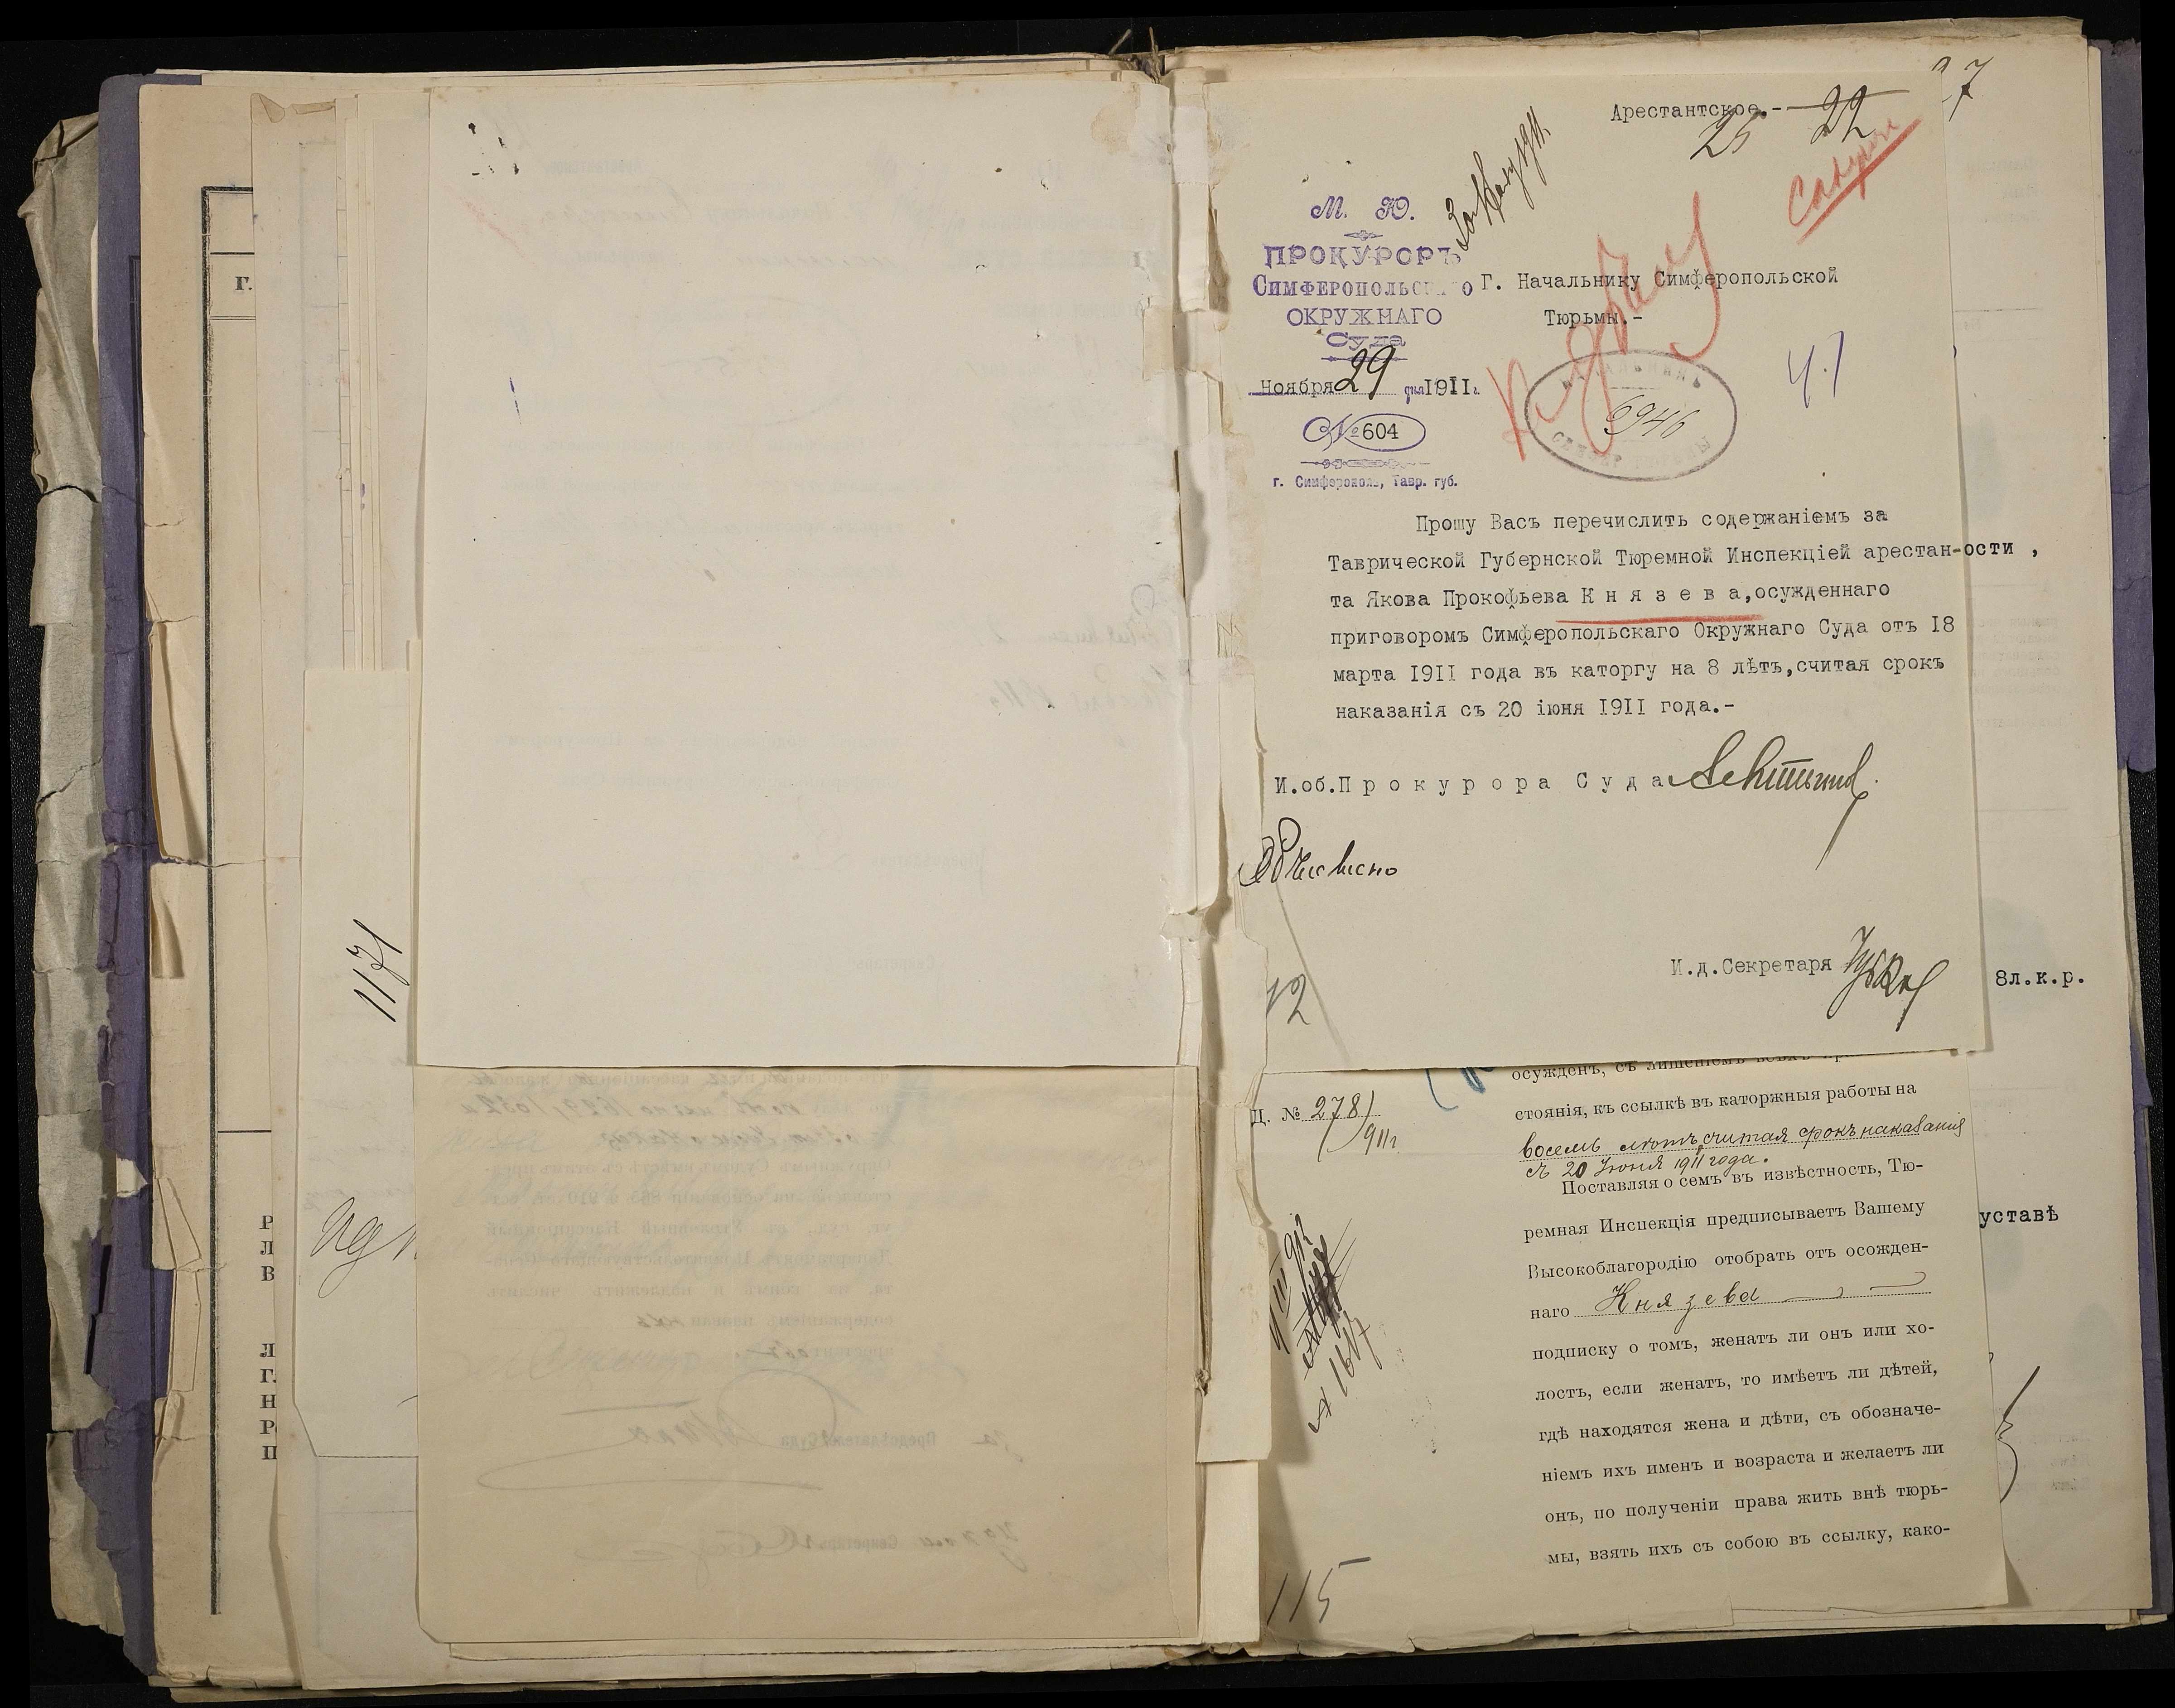 Арестантское.-
22
25
27
М. Ю.
ПРОКУРОРЪ
СИМФЕРОПОЛЬСКАГО
ОКРУЖНАГО
Суда
Ноября 29 дня 1911 г.
№ 604
г. Симферополь, Тавр. губ.
Г. Начальнику Симферопольской
Тюрьмы.-
6946
Ч.1
Прошу Васъ перечислить содержаніемъ за
Таврической Губернской Тюремной Инспекціей арестан-
та Якова Прокофьева Князева, осужденнаго
приговоромъ Симферопольскаго Окружнаго Суда отъ 18
марта 1911 года въ каторгу на 8 лѣтъ, считая срокъ
наказанія съ 20 іюня 1911 года.-
И.об.Прокурора Суда
И.д.Секретаря
12
ости ,
8л.к.р.
уставѣ
Д. № 278
911г.
осужденъ, съ лишеніемъ всѣхъ
стоянія, къ ссылкѣ въ каторжныя работы на
восемь лѣтъ, считая срокъ наказанія
съ 20 Іюня 1911 года.
Поставляя о семъ въ извѣстность, Тю-
ремная Инспекція предписываетъ Вашему
Высокоблагородію отобрать отъ осожден-
наго Князева
подписку о томъ, женатъ ли онъ или хо-
лостъ, если женатъ, то имѣетъ ли дѣтей,
гдѣ находятся жена и дѣти, съ обозначе-
ніемъ ихъ именъ и возраста и желаетъ ли
онъ, по полученіи права жить внѣ тюрь-
мы, взять ихъ съ собою въ ссылку, како-
115
1171